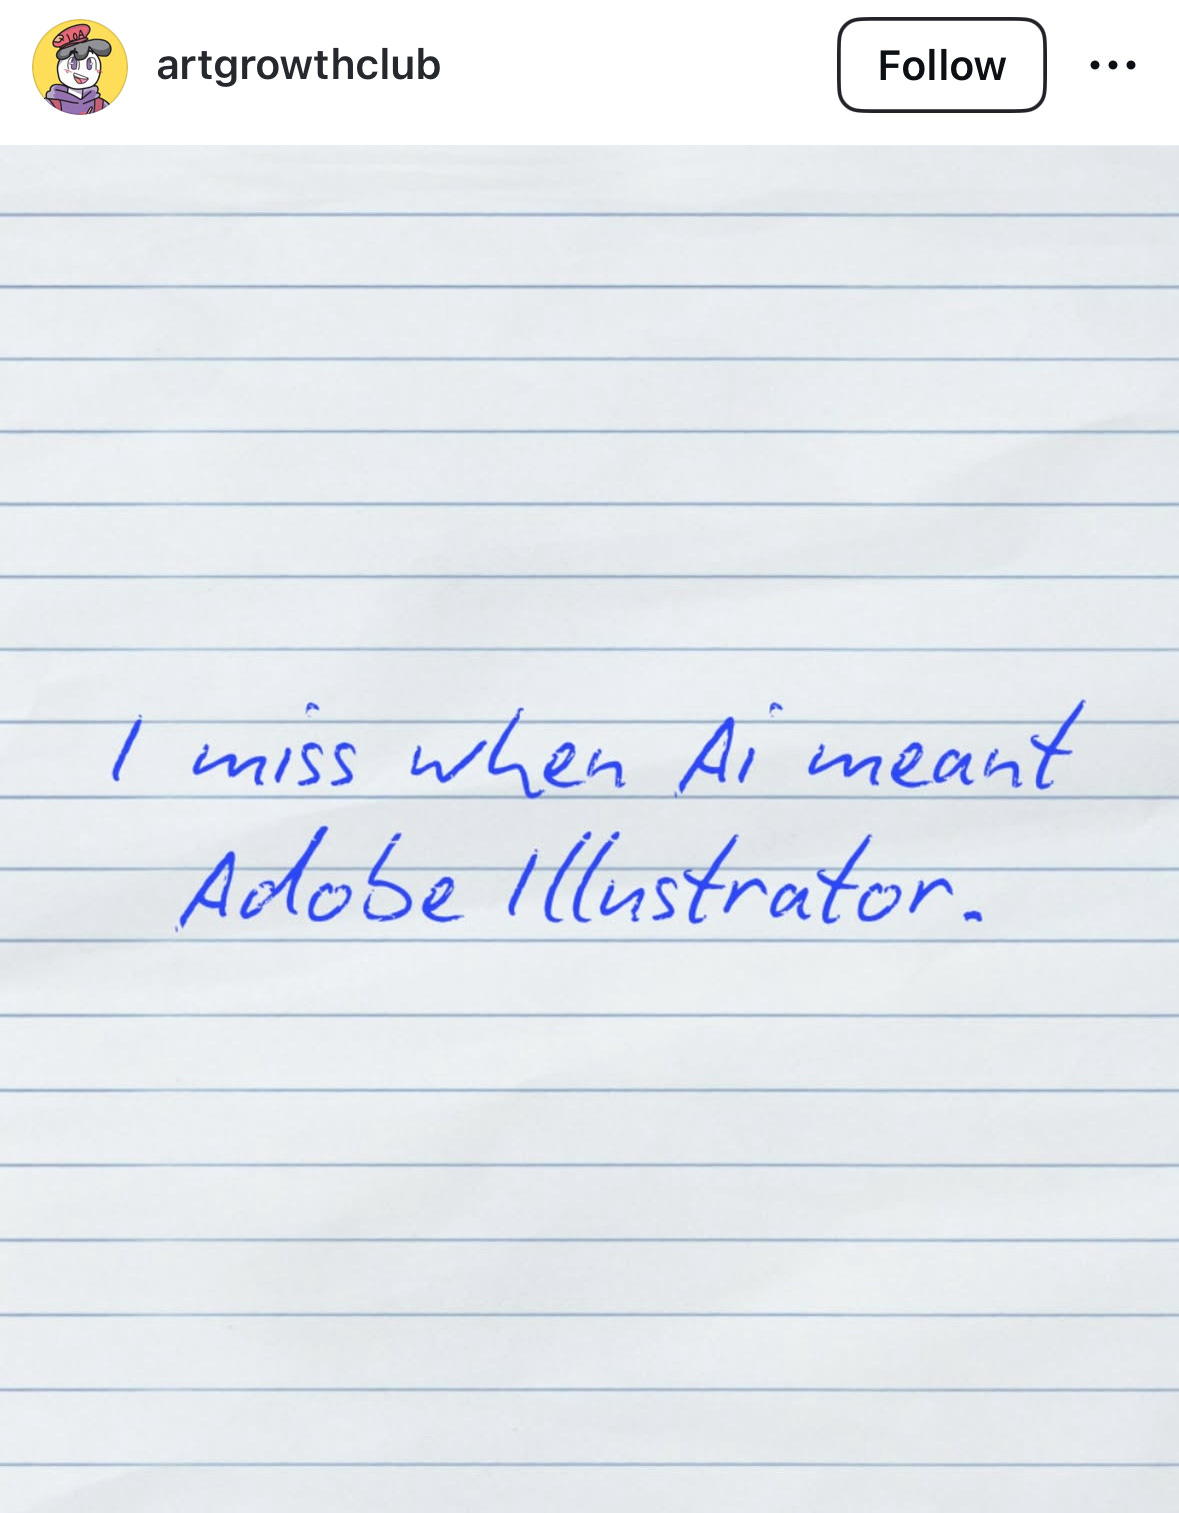 LOA
artgrowthclub
Follow
I miss when Ai meant
Adobe Illustrator.